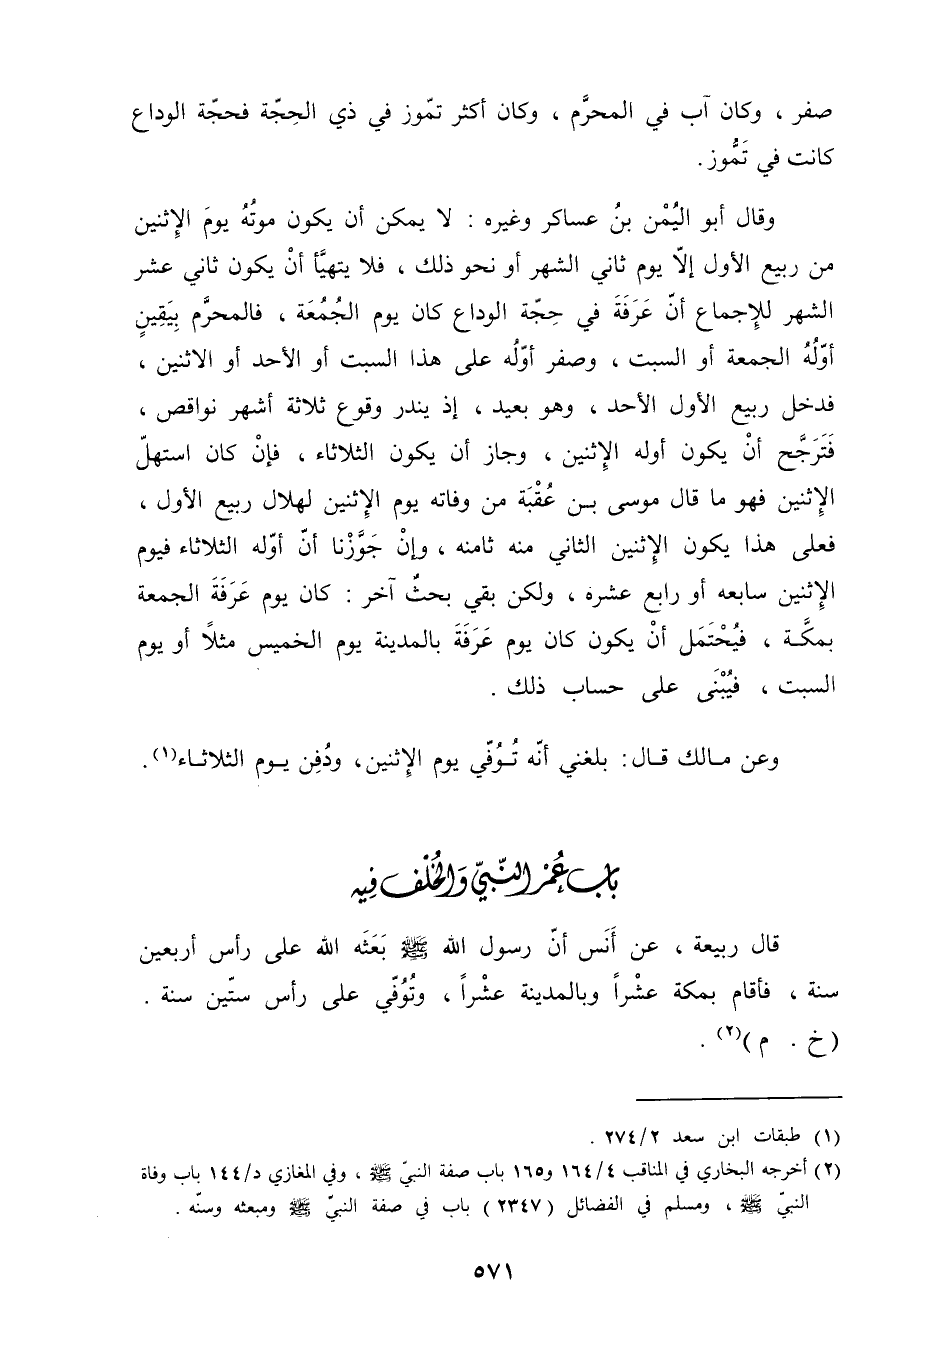 صفر ، وكان آب في المحرَّم ، وكان أكثر تمّوز في ذي الحِجّة فحجّة الوداع
كانت في تَمُّوز .
وقال أبو اليُمْن بنُ عساكر وغيره : لا يمكن أن يكون موتُهُ يومَ الإِثنين
من ربيع الأول إلاّ يوم ثاني الشهر أو نحو ذلك ، فلا يتهيَّأ أنْ يكون ثاني عشر
الشهر للإِجماع أنّ عَرَفَةَ في حِجّة الوداع كان يوم الجُمُعَة ، فالمحرَّم بِيَقِينٍ
أوّلُهُ الجمعة أو السبت ، وصفر أوّلُه على هذا السبت أو الأحد أو الاثنين ،
فدخل ربيع الأول الأحد ، وهو بعيد ، إذ يندر وقوع ثلاثة أشهر نواقص ،
فَتَرَجَّح أنْ يكون أوله الإِثنين ، وجاز أن يكون الثلاثاء ، فإنْ كان استهلّ
الإِثنين فهو ما قال موسى بـن عُقْبَة من وفاته يوم الإِثنين لهلال ربيع الأول ،
فعلى هذا يكون الإِثنين الثاني منه ثامنه ، وإنْ جَوَّزْنا أنّ أوّله الثلاثاء فيوم
الإِثنين سابعه أو رابع عشره ، ولكن بقي بحثٌ آخر : كان يوم عَرَفَةَ الجمعة
بمكَّـة ، فيُحْتَمَل أنْ يكون كان يوم عَرَفَةَ بالمدينة يوم الخميس مثلاً أو يوم
السبت ، فيُبْنَى على حساب ذلك .
وعن مـالك قـال : بلغني أنّه تُـوُفّي يوم الإِثنين، ودُفِن يـوم الثلاثـاء(١) .
باب عُمْر النّبيّ وَالخُلْف فِيه
قال ربيعة ، عن أَنَس أنّ رسول الله ﷺ بَعَثَه الله على رأس أربعين
سنة ، فأقام بمكة عشْراً وبالمدينة عشْراً ، وتُوُفّي على رأس ستّين سنة .
(خ . م)(٢) .
(١) طبقات ابن سعد ٢٧٤/٢ .
(٢) أخرجه البخاري في المناقب ١٦٤/٤ و١٦٥ باب صفة النبيّ ﷺ ، وفي المغازي د/١٤٤ باب وفاة
النبيّ ﷺ ، ومسلم في الفضائل (٢٣٤٧) باب في صفة النبيّ ﷺ ومبعثه وسنّه .
٥٧١